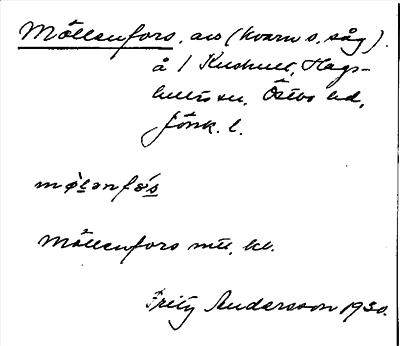 Möllenfors, avs (kvarn o. såg).
å / Kushult, Hags-
hults sn, Östbo hd,
Jönk. l.
mø̀lǝnfǿs
Möllenfors mtl, kb.
Fritz Andersson 1930.